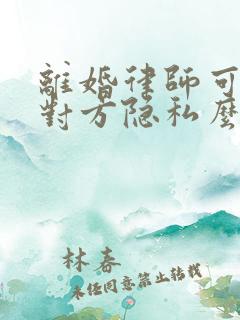 離婚律師可
對方隐私麼
林春
未任同意禁止转载